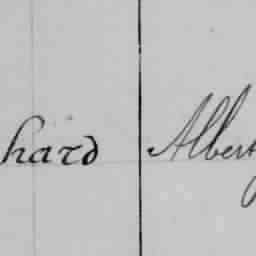 hard Albert